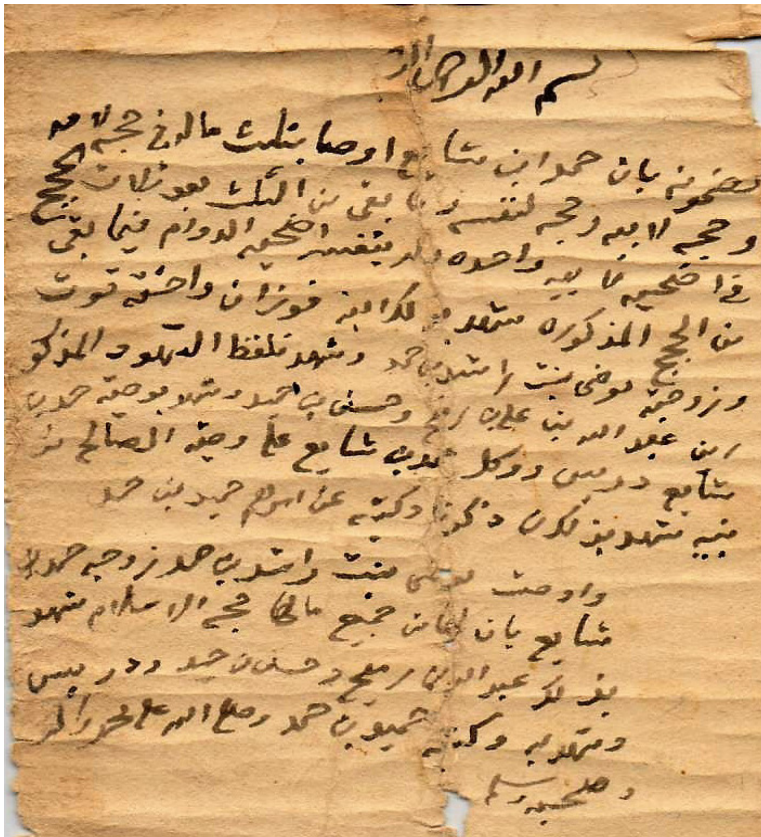 بسم الله الرحمن الر
مضمونه بان حمد ابن شايع اوصا بثلث ماله في حجه لامه
وحجه لابيه وحجه لنفسه وما بقى من الثلث بعد ثلاث الحجج
في اضحيه لابيه واحده ولد بنفسه اضحيه الدوام فيما بقى
من الحجج المذكوره شهد بذلك ابنه فوزان واخته قوت
وزوجته موضى بنت راشد بن حمد وشهد تلفظ الشهود المذكو
رين عبد الله بن علي بن رميح وحسن بن حميد وشهد بوصية حمد بن
شايع دريس ووكل حمد بن شايع على وصيته الصالح من
بنيه شهد بذلك من ذكرنا وكتبه عن امرهم حميد بن حمد
واوصت موضى بنت راشد بن حمد زوجه حمد بن
شايع بان لها من جميع مالها حجه الاسلام شهد
بذلك عبد الله بن رميح وحسن بن حميد ودريس
وشهد به وكتبه حميد بن حمد وصلى الله على محمد واله
وصحبه وسلم